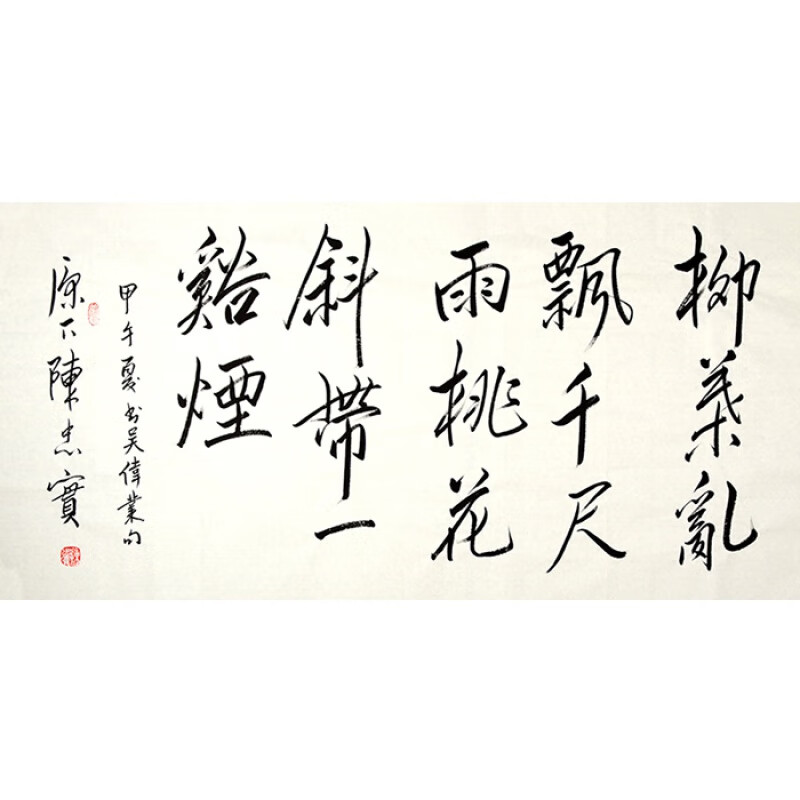 柳葉亂
飄千尺
雨桃花
斜帶一
谿煙
甲午夏书吴偉業句
原下陳忠實